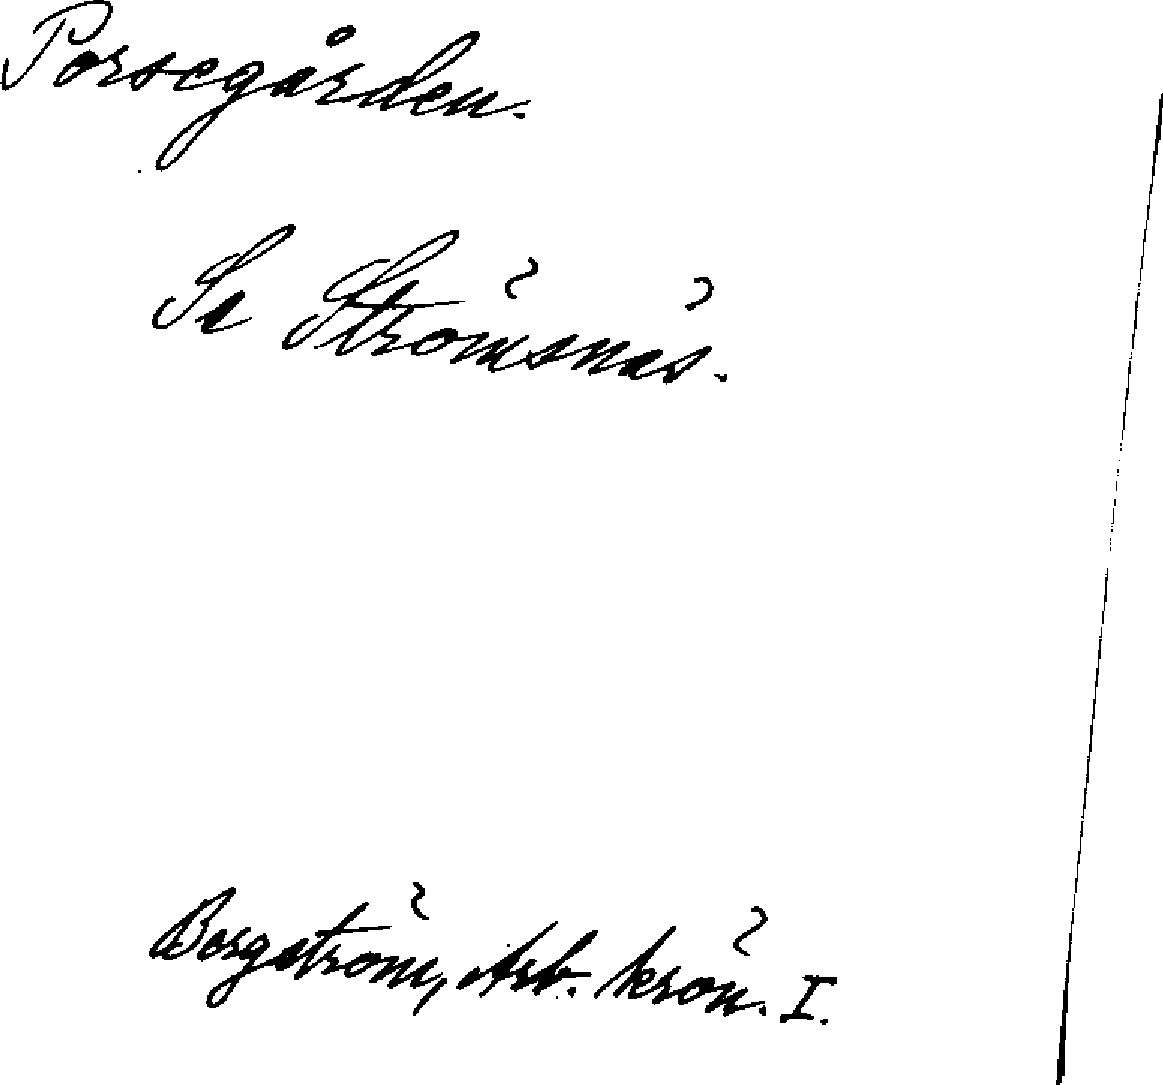 Porsegården.
Se Strömsnäs.
Bergström, Arb. krön. I.